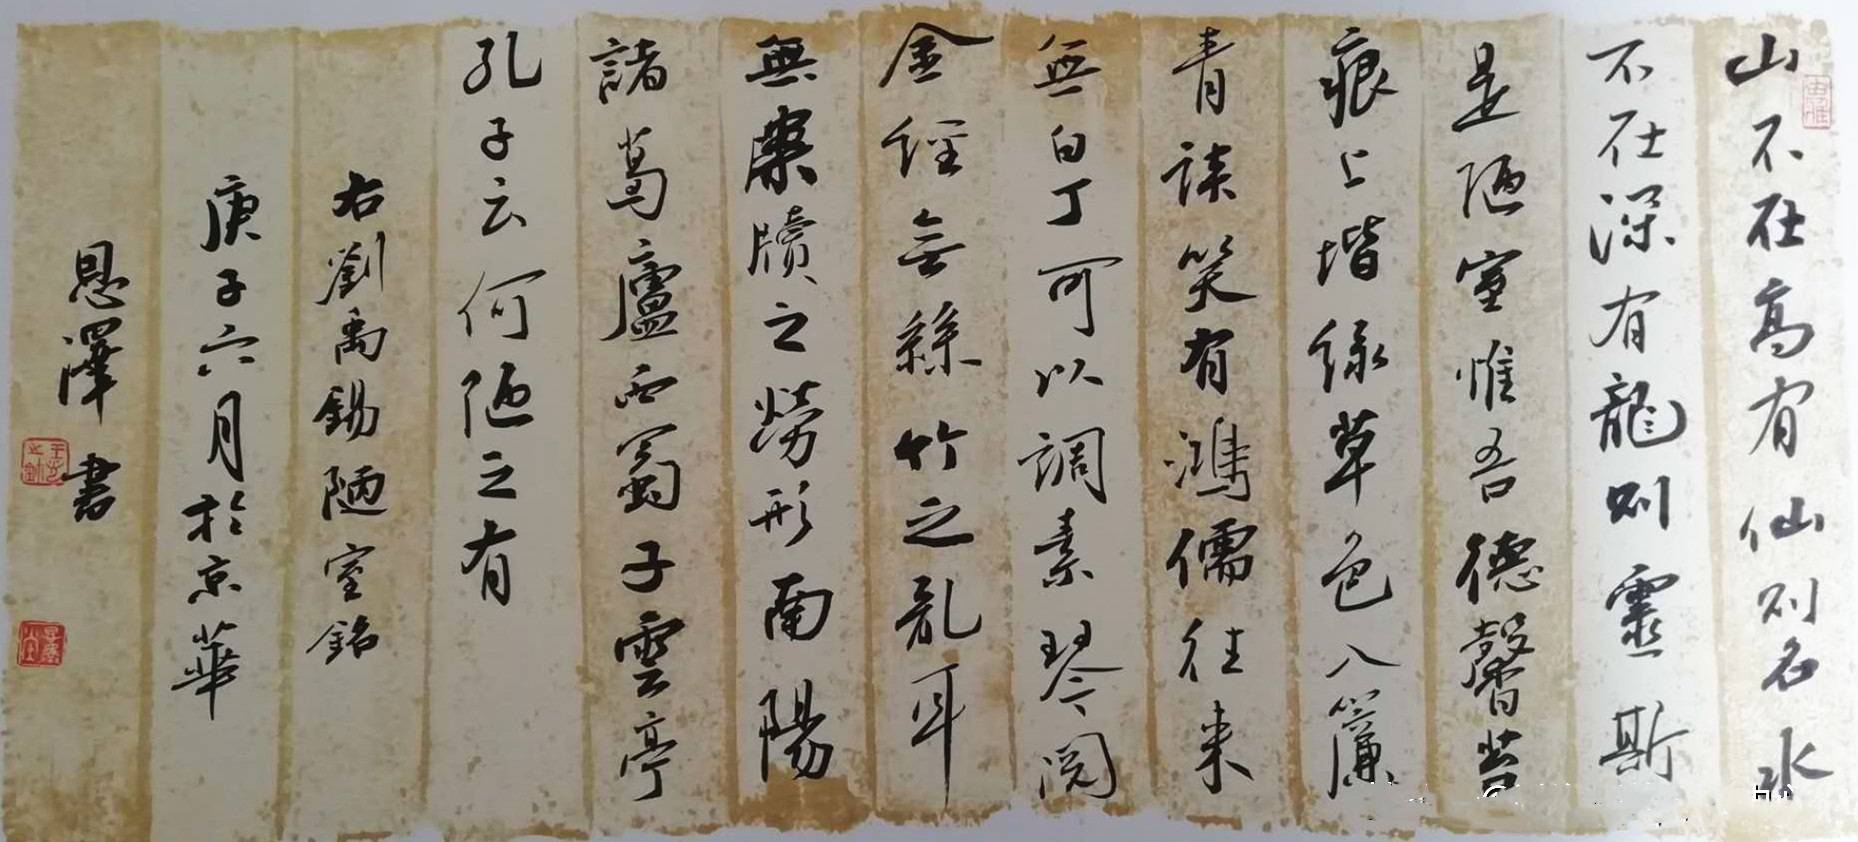 山不在高有仙则名水
不在深有龍则靈斯
是陋室惟吾德馨苔
痕上堦绿草色入簾
青談笑有鴻儒往来
無白丁可以調素琴閲
金經無絲竹之亂耳
無案牘之勞形南陽
諸葛廬西蜀子雲亭
孔子云何陋之有
右劉禹錫陋室銘
庚子六月於京華
恩澤書